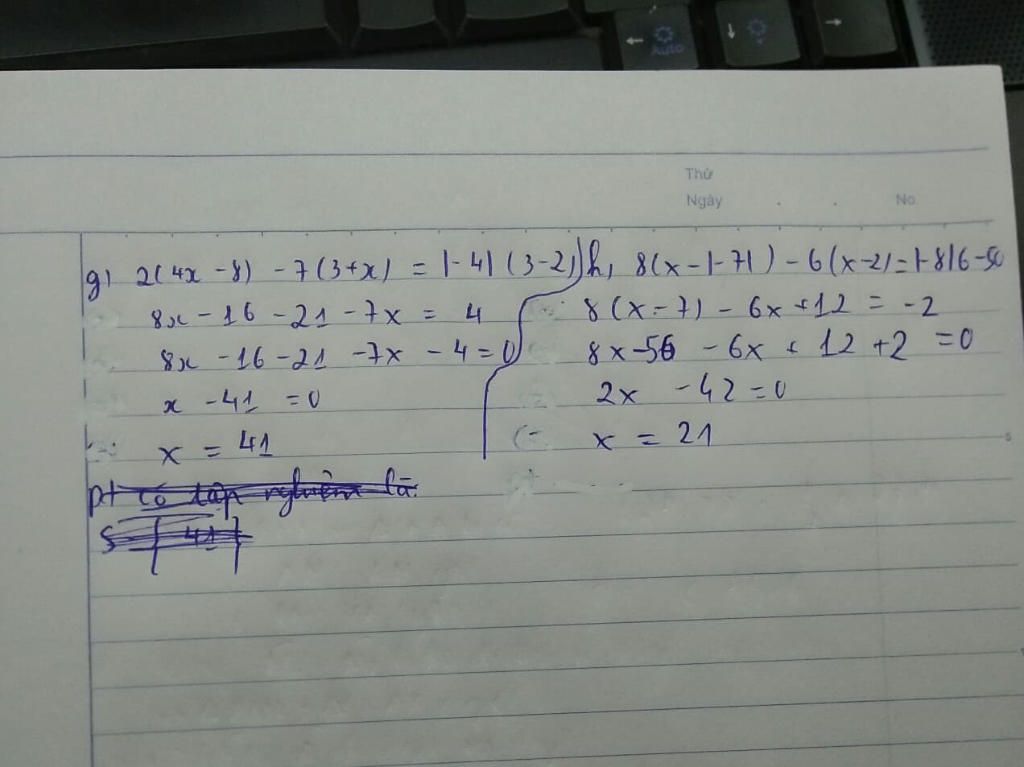 Auto
Thứ
Ngày . . No.
g) 2(4x - 8) - 7(3+x) = |-4| (3-2)
8x - 16 - 21 - 7x = 4
8x - 16 - 21 - 7x - 4 = 0
x - 41 = 0
x = 41
pt có tập nghiệm là:
S = { 41 }
h, 8(x - |-7|) - 6(x-2) = |-8|6-50
8(x - 7) - 6x + 12 = -2
8x - 56 - 6x + 12 + 2 = 0
2x - 42 = 0
x = 21